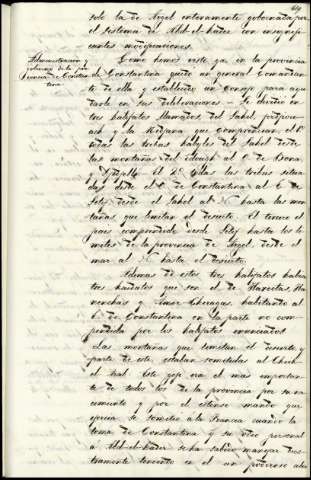 69
solo la de Argel enteramente gobernada por
el sistema de Abd-el-kader con insignifi
cantes modificaciones.
Administracion y
gobierno de la pro
vincia de Constan
tina
Como hemos visto ya en la provincia
de Constantina quedo un general Comandan
te de ella y establecido un Consejo para ayu
darle en sus deliberaciones – Se dividio en
tres halifatos llamados, del Sahel, ferdjioua
y la Medjana que comprendian el 1º
todas las tribus kabyles del Sahel desde
las montañas del Edough al O. de Bona,
a Djidjelli. El 2º
 las tribus situa
das desde el O. de Constantina al E. de
Setif desde el Sahel al N. hasta las mon
tañas que limitan el desierto. El tercero el
pais comprendido desde Setif hasta los li
mites de la provincia de Argel, desde el
mar al N. hasta el desierto.
Ademas de estos tres halifatos habia
tres kaidatos que son el de Haractas, Ha
nenchas y Amer Cheragas, habitando al
E. de Constantina en la parte no com
prendida por los halifatos enunciados
Las montañas que limitan el desierto y
parte de este estaban sometidas al Cheik
el Arab. Este gefe era el mas importan
te de todos los de la provincia por su na
cimiento y por el estenso mando que
ejercia se sometio a la Francia cuando la
toma de Constantina y su odio personal
a Abd-el-kader se ha sabido manejar dies
tramente teniendo en el un poderoso alia